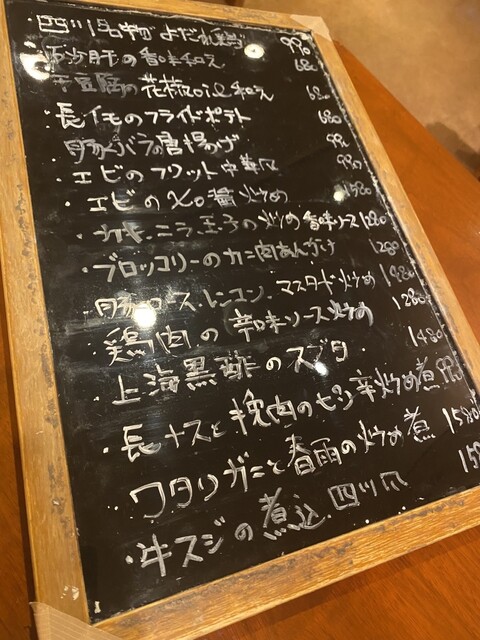 ・四川名物よだれ鶏 990
・砂肝の香味和え 680
・干豆腐の花椒oil和え 680
・長イモのフライドポテト 680
・豚バラの唐揚げ 990
・エビのフリット中華风 990
・エビのXO醤炒め 1580
・カキ、ニラ、玉子の炒め香味ソース 1280
・ブロッコリーのカニ肉あんかけ 1280
・豚ロース、レンコン、マスタード炒め 1480
・鶏肉の辛味ソース炒め 1280
・上海黒酢のスブタ 1480
・長ナスと挽肉のピリ辛炒め煮 990
・ワタリガニと春雨の炒め煮 1580
・牛スジの煮込 四川风